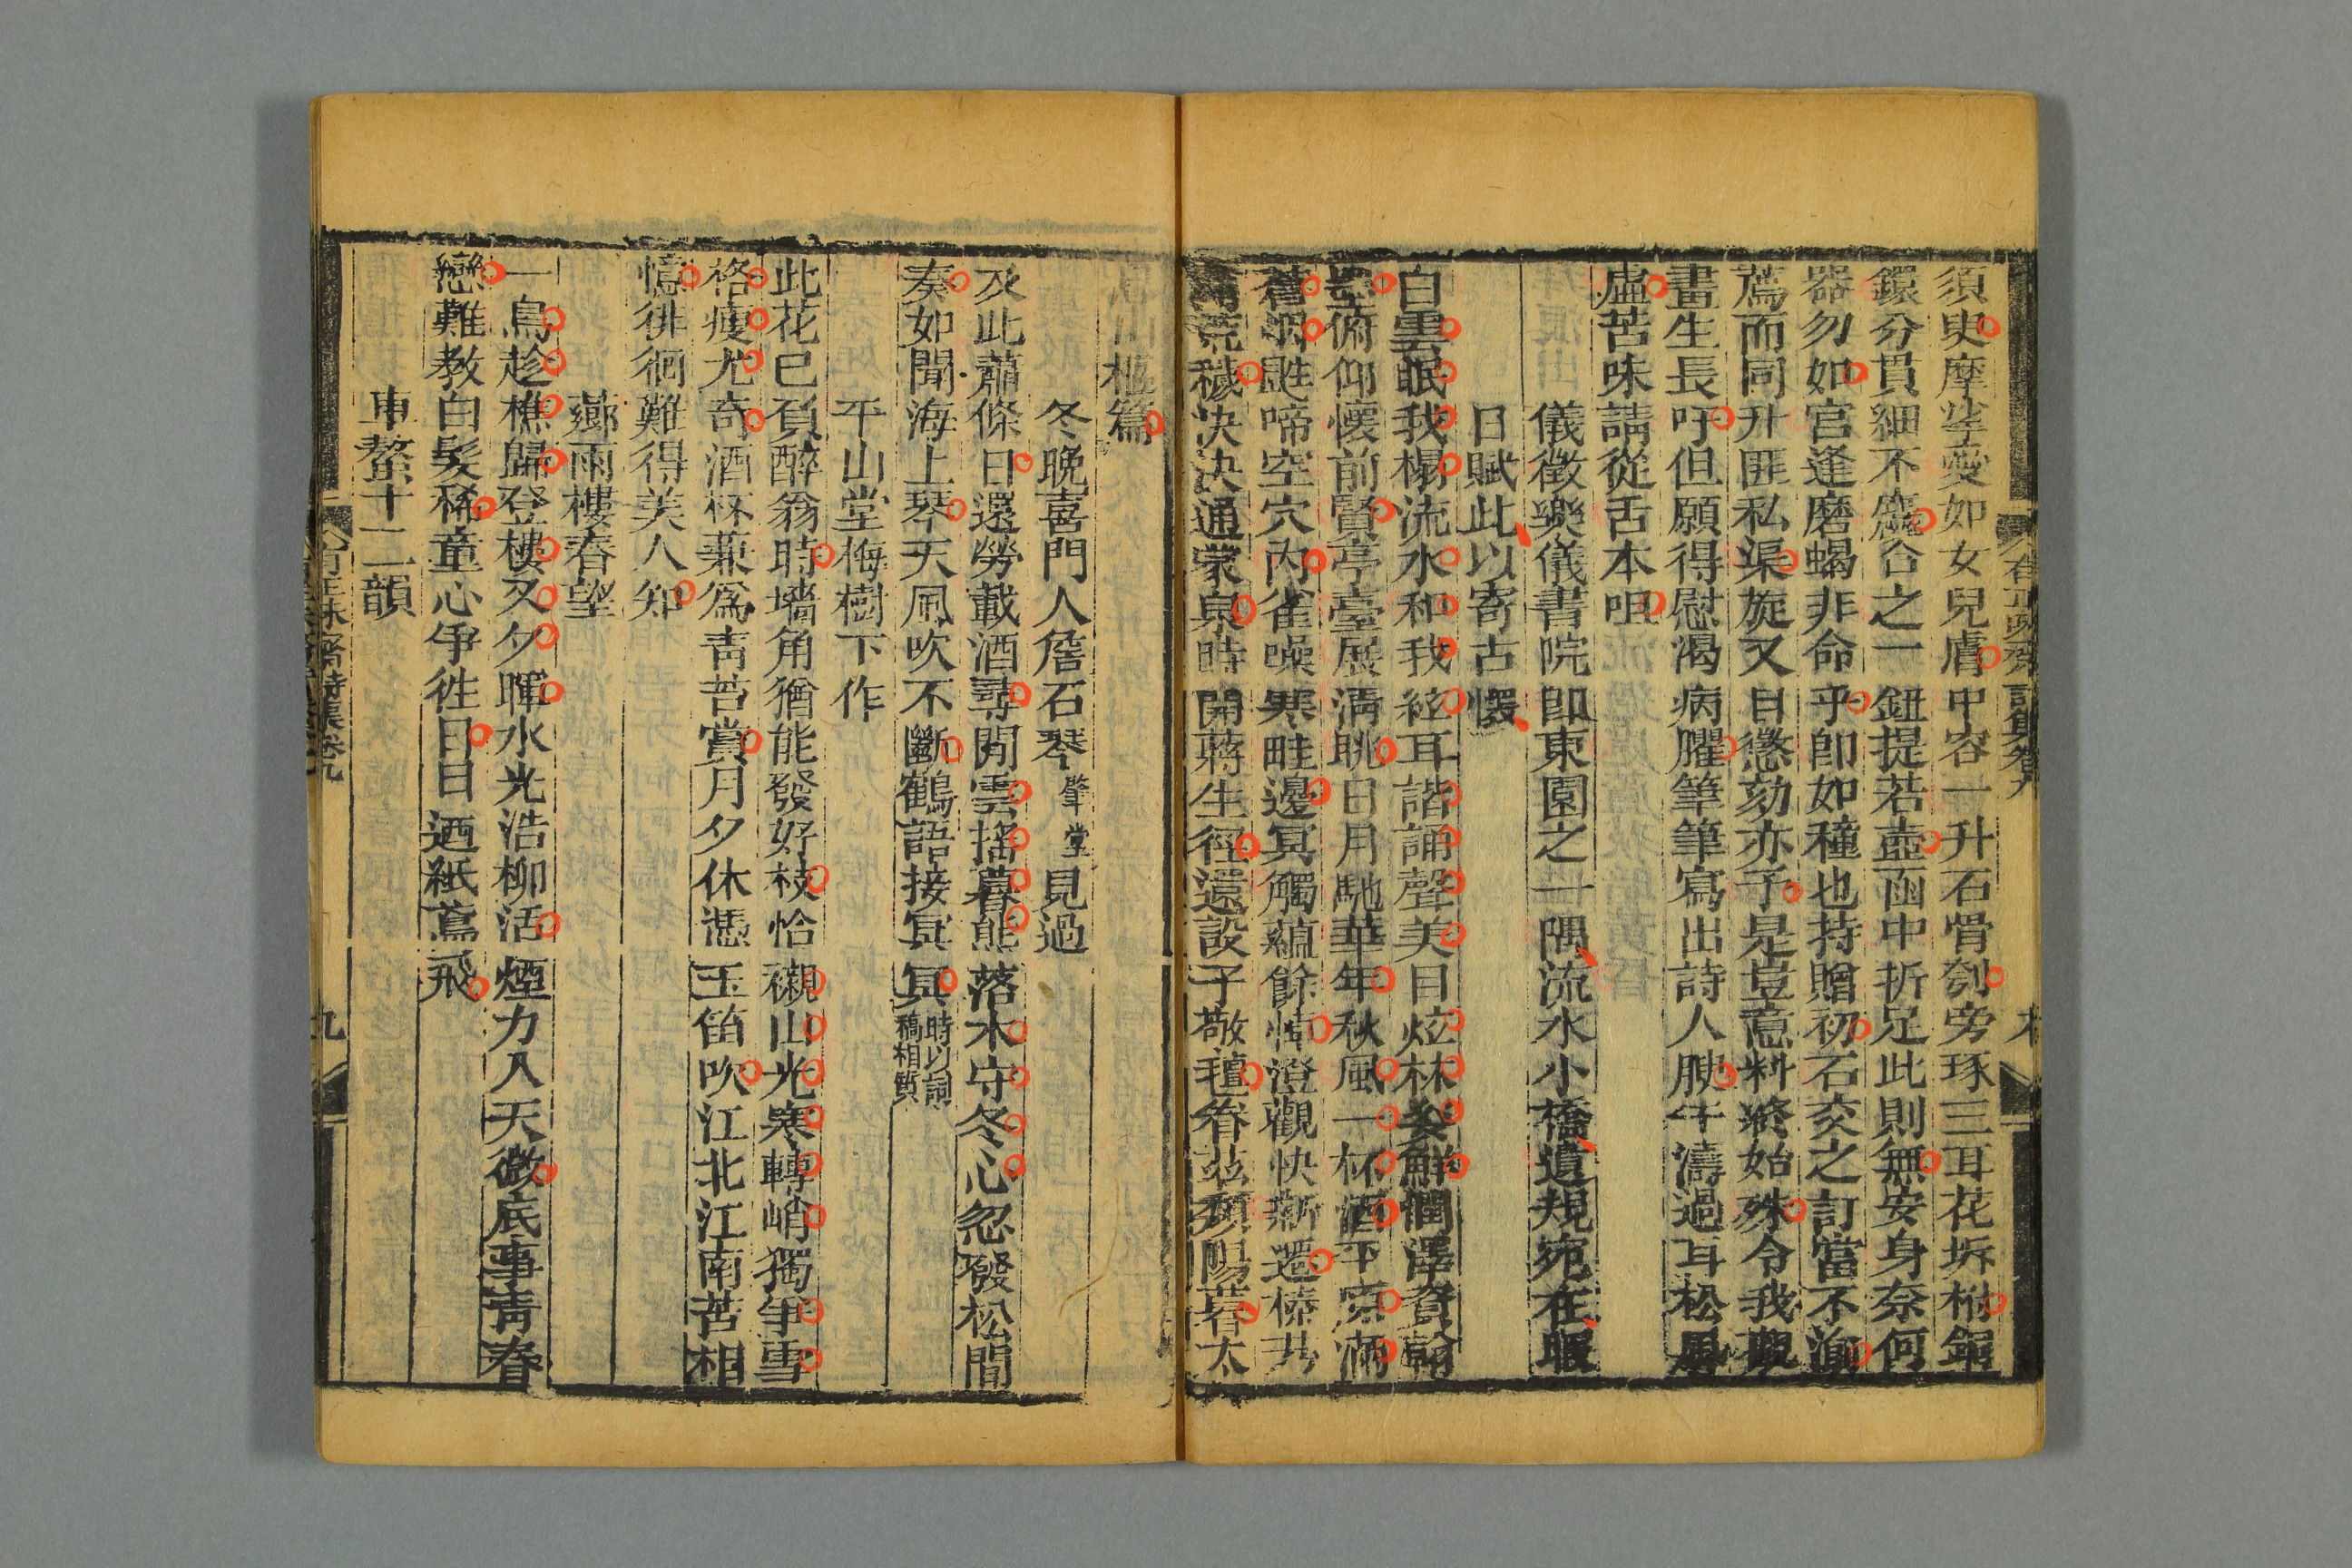 須臾摩挲愛如女兒膚中容一升石骨刳旁琢三耳花坼柎銅
鐶分貫細不麤合之一鈕提若壺函中折足此則無安身奈何
器勿如宮逢磨蝎非命乎卽如種也持贈初石交之訂當不渝
薦而同升匪私渠旋又自懲劾亦予是豈意料終始殊令我觀
畫生長吁但願得慰渴病臞筆筆寫出詩人腴午濤過耳松風
盧苦味請從舌本咀
儀徵樂儀書院卽東園之一隅流水小橋遺規宛在暇
日賦此以寄古懷
白雲眠我榻流水和我絃耳諧誦聲美目炫林姿鮮憫澤資翰
俯仰懷前賢亭臺展淸眺日月馳華年秋風一杯酒平滿
蒼洞鼪啼空穴內雀噪寒畦邊冥觸蘊餘悼澄觀快新遷榛艿
荒穢決決通蒙泉時開蔣生徑還設子敬氊眷茲頹陽暮太
樞篇
冬晚喜門人詹石琴肇堂見過
及此蕭條日還勞載酒尋閒雲搖暮能落木守冬心忽發松間
奏如聞海上琴天風吹不斷鶴語接冥冥時以詞稿相質
平山堂梅樹下作
此花已負醉翁時墻角猶能發好枝恰襯山光寒轉峭獨爭雪
格瘦尤奇酒杯兼爲靑苔賞月夕休憑玉笛吹江北江南苦相
憶徘徊難得美人知
薌雨樓春望
一鳥趁樵歸登樓又夕暉水光浩柳活煙力入天微底事靑春
戀難敎白髮稀童心爭徃日日迺紙鳶飛
車螯十二韻
有正味齋詩集卷九
九